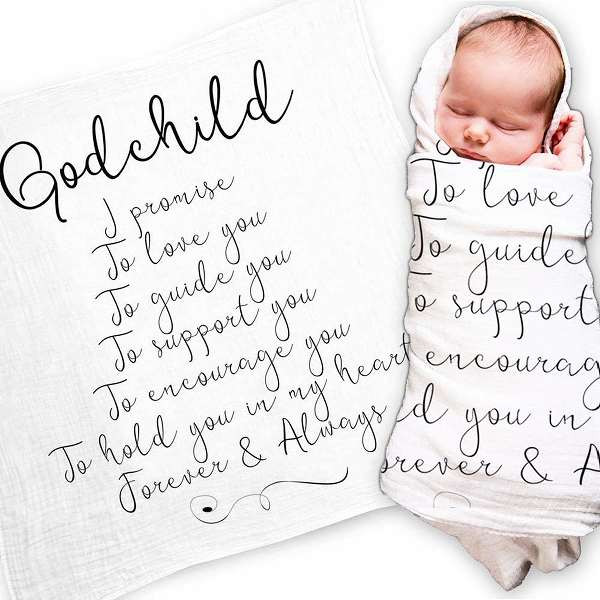 Godchild
I promise
To love you
To guide you
To support you
To encourage you
To hold you in my heart
Forever & Always
To love
To guide
To support
encourag
d you in
orever & A